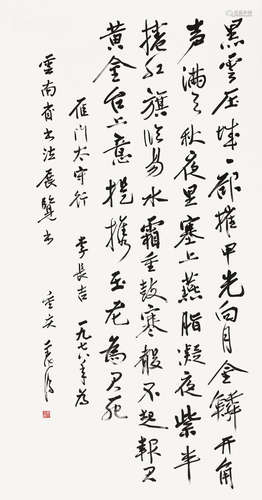 黑雲压城〻欲摧甲光向月金鳞开角
声满天秋色里塞上燕脂凝夜紫半
捲红旗临易水霜重鼓寒声不起報君
黄金台上意提携玉龙为君死
雁门太守行 李長吉 一九七八年为
雲南省书法展覽书 重庆